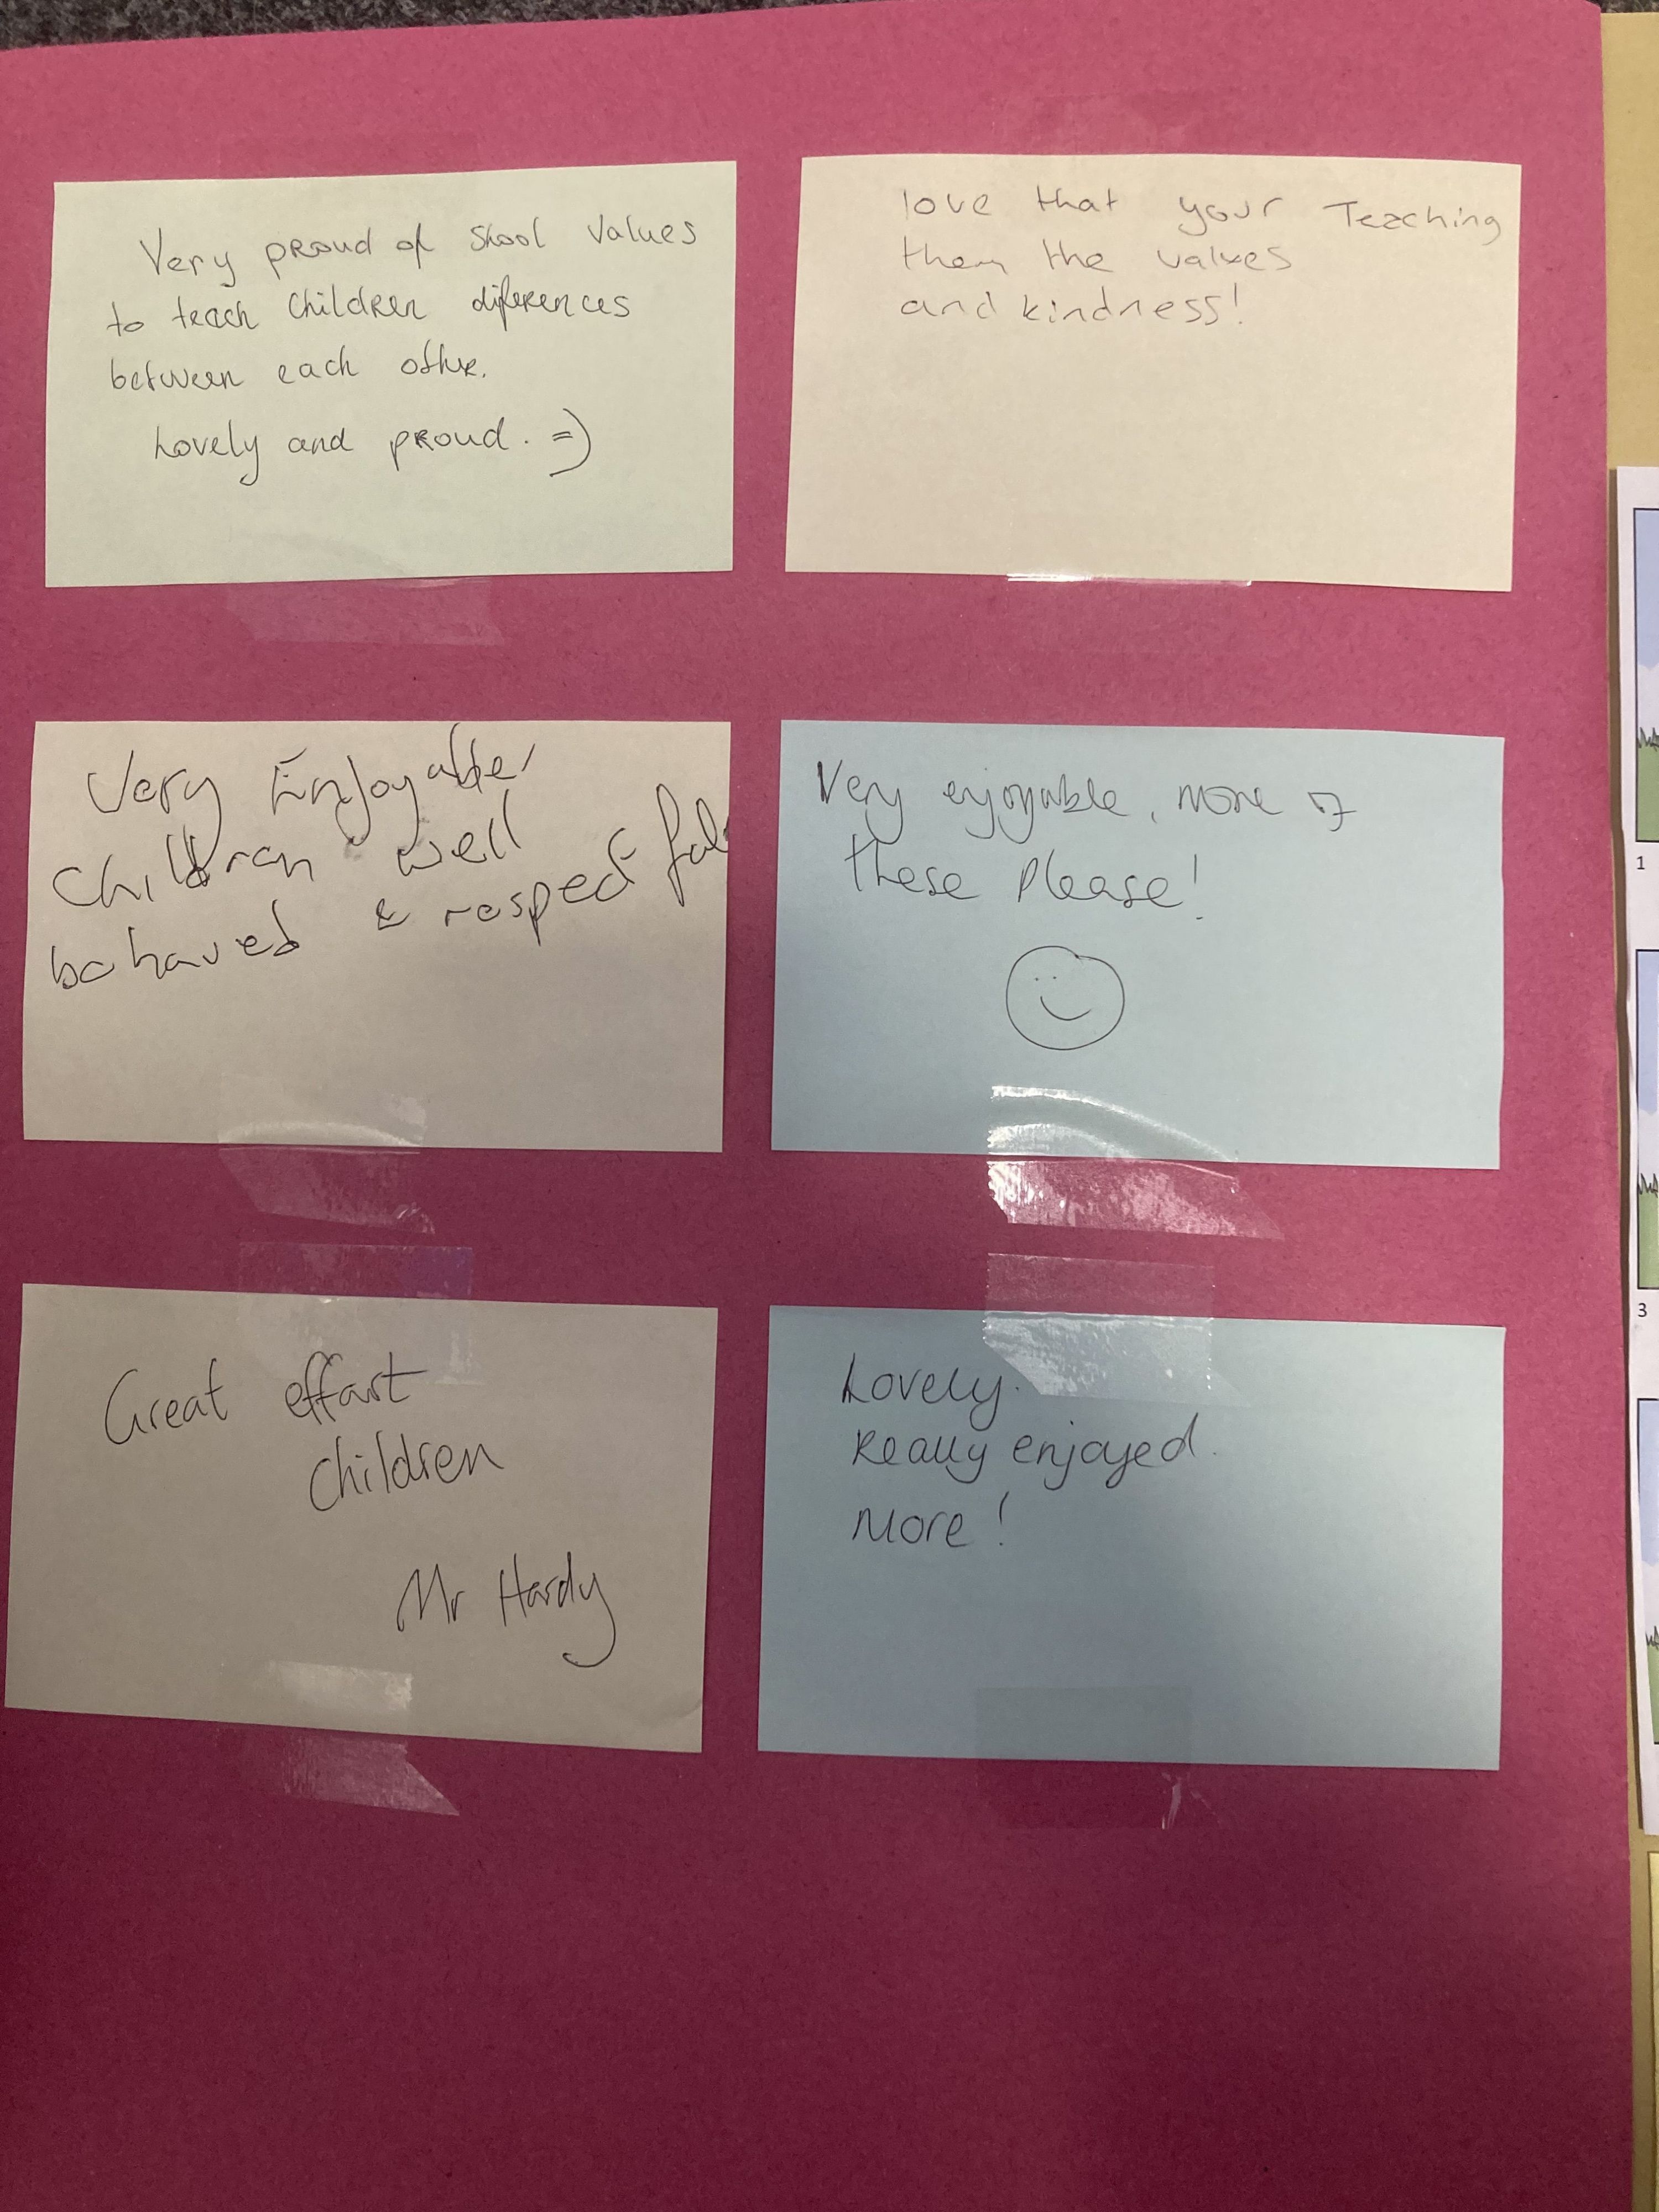 Very proud of Skool Values
to teach children diferences
between each other.
Lovely and proud. =)
love that your Teaching
them the values
and kindness!
Very Enjoyable,
children well
behaved & respectful
Very enjoyable, more of
these please!
Great effort
children
Mr Hardy
Lovely.
Really enjoyed.
More!
1
3